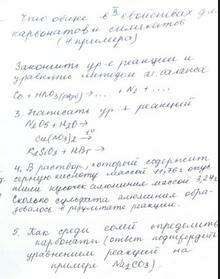 Что общего в свойствах
карбонатов и силикатов
(4 примера)
Закончить ур-е реакции и
уравнение методом эл. баланса
HNO₃ → ... + N₂ + ....
3. Написать ур. реакций
N₂O₅ + H₂O →
Cu(NO₃)₂ t° →
K₂SiO₃ + HBr →
4. В раствор, который содержит
серную кислоту массой
кусочек алюминия массой
Сколько сульфата алюминия обра-
зовалось в результате реакции.
5. Как среди солей определить
карбонаты (ответ подтвердить
уравнением реакций на
примере Na₂CO₃)